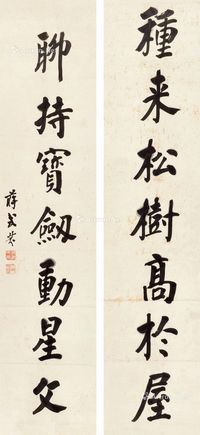 種来松樹高於屋
聊持寶劔動星文
薛式芬